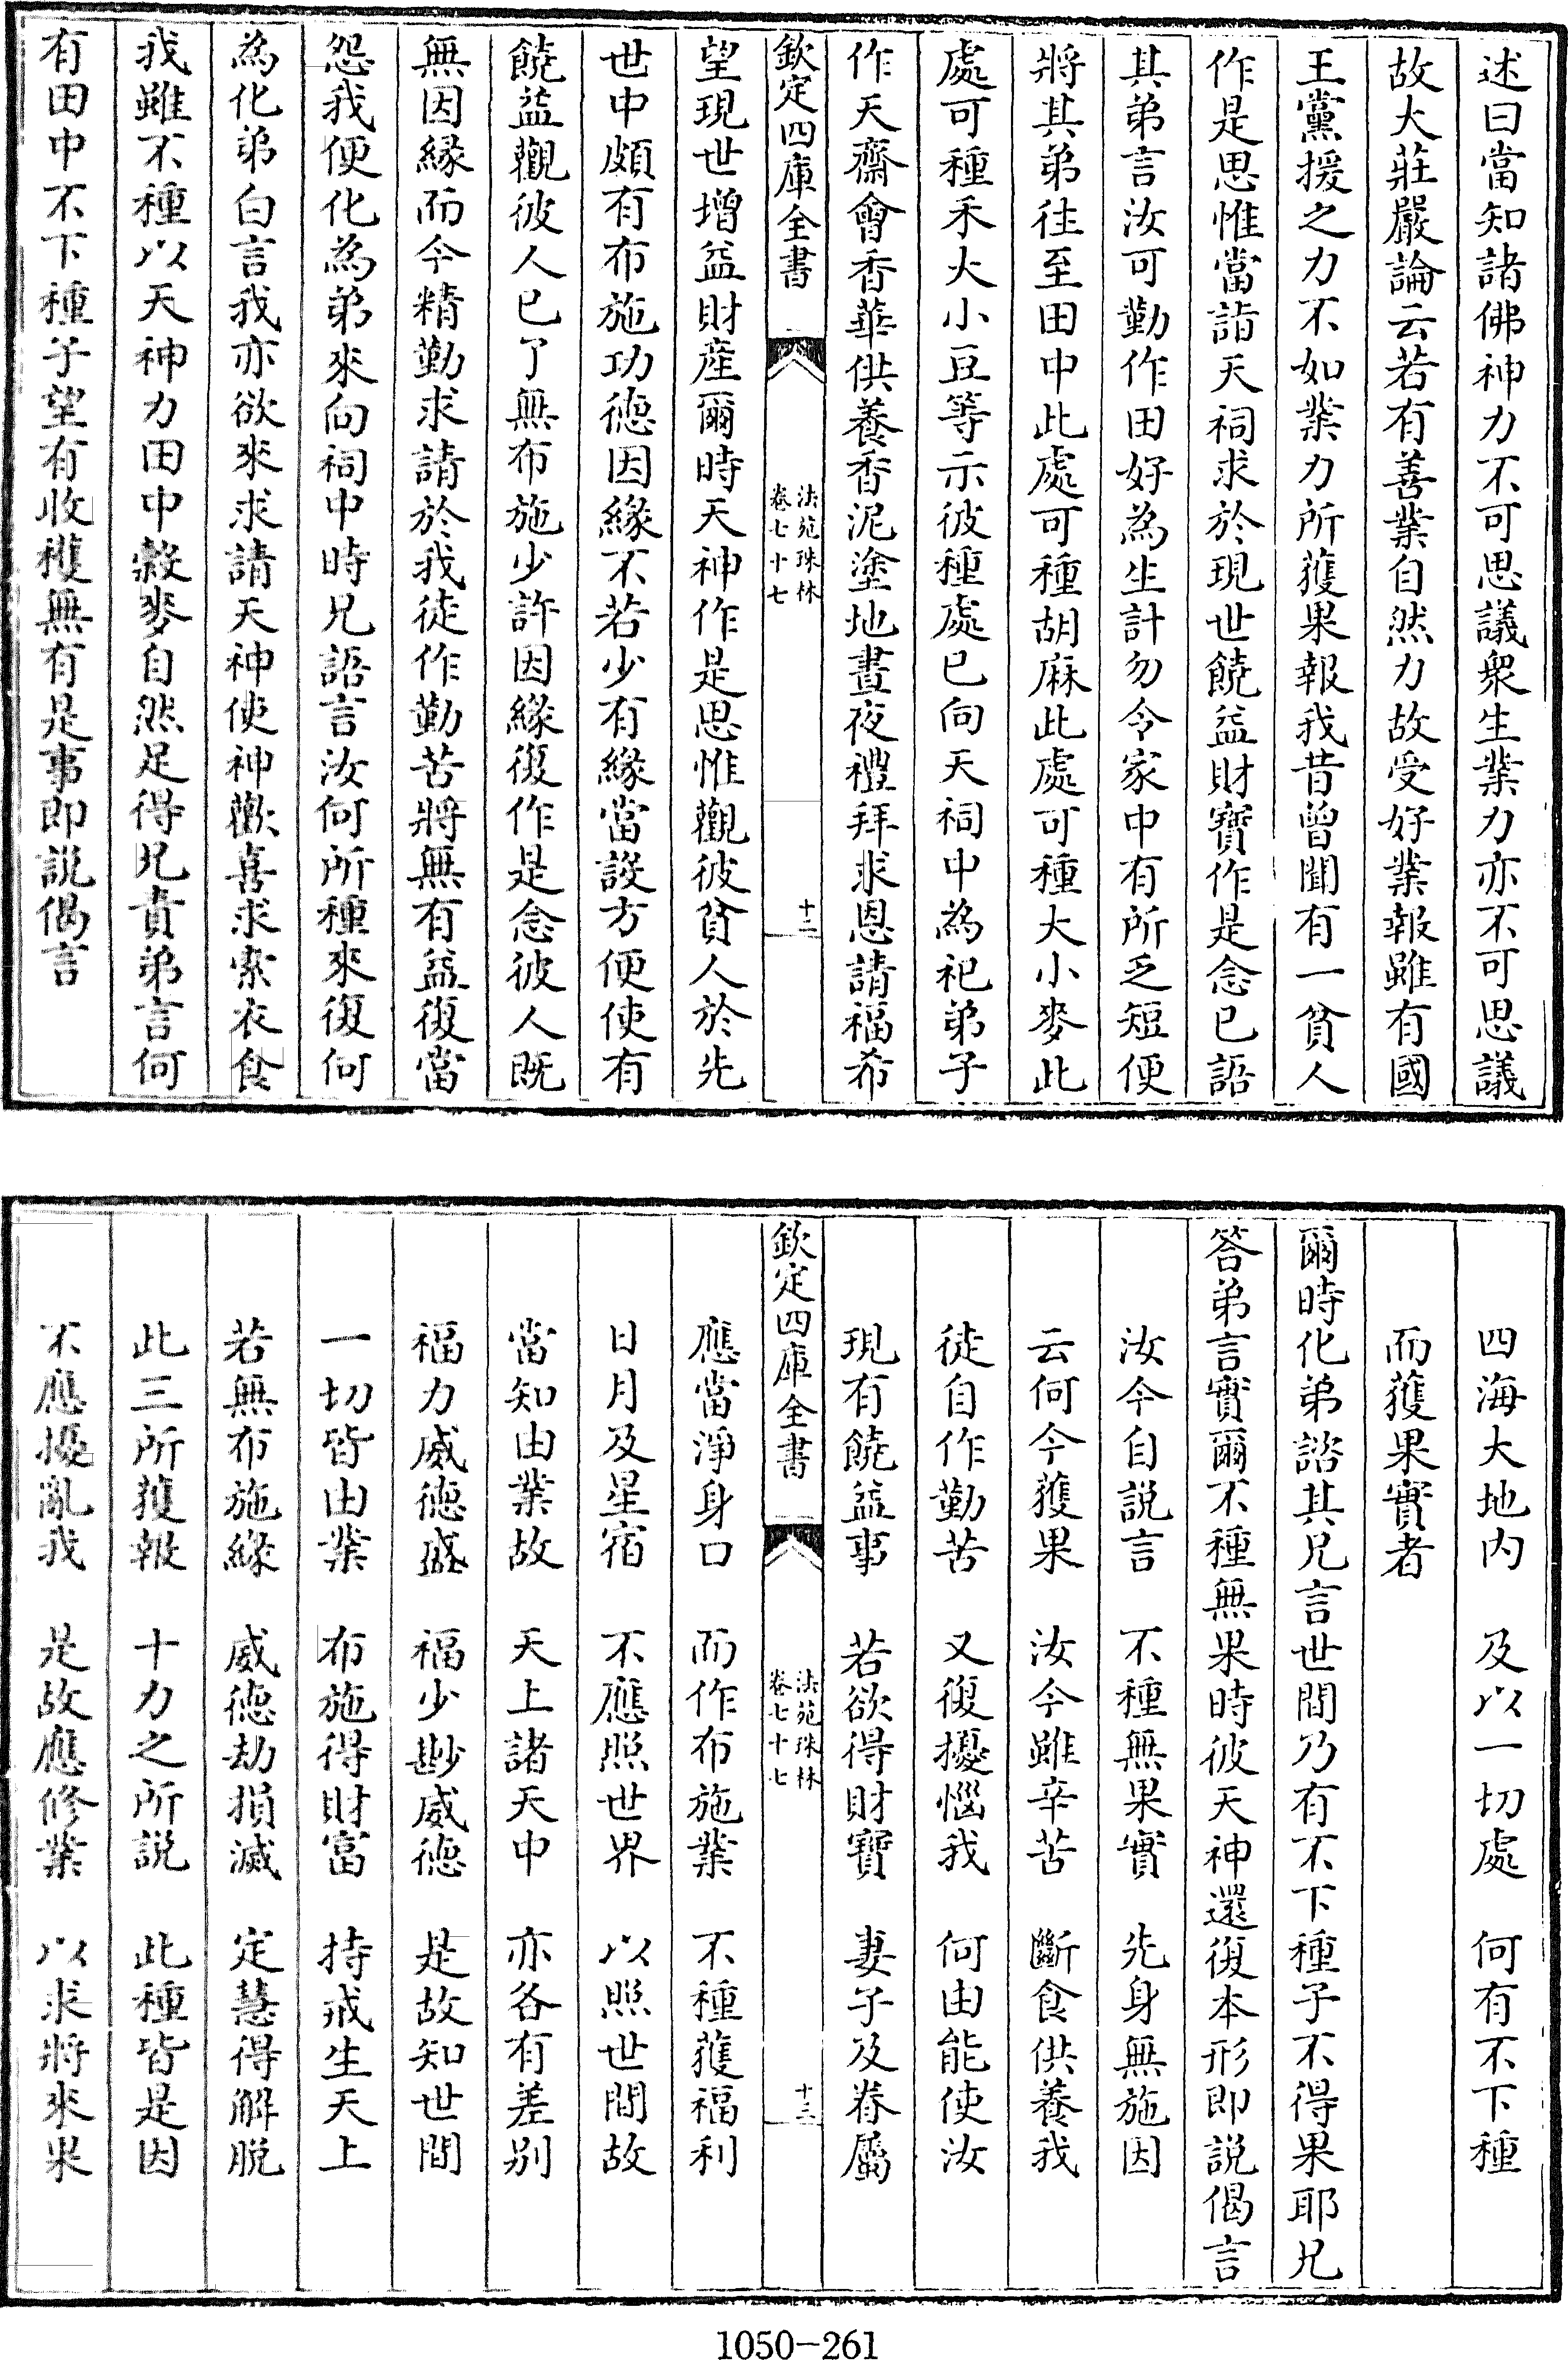 述曰當知諸佛神力不可思議衆生業力亦不可思議
故大莊嚴論云若有善業自然力故受好業報雖有國
王黨援之力不如業力所獲果報我昔曾聞有一貧人
作是思惟當詣天祠求於現世饒益財寶作是念已語
其弟言汝可勤作田好為生計勿令家中有所乏短便
將其弟往至田中此處可種胡麻此處可種大小麥此
處可種禾大小豆等示彼種處已向天祠中為祀弟子
作天齋會香華供養香泥塗地晝夜禮拜求恩請福希
欽定四庫全書
法苑珠林
卷七十七
十二
望現世增益財産爾時天神作是思惟觀彼貧人於先
世中頗有布施功德因緣不若少有緣當設方便使有
饒益觀彼人已了無布施少許因緣復作是念彼人既
無因緣而今精勤求請於我徒作勤苦將無有益復當
怨我便化為弟來向祠中時兄語言汝何所種來復何
為化弟白言我亦欲來求請天神使神歡喜求索衣食
我雖不種以天神力田中穀麥自然足得兄責弟言何
有田中不下種子望有收穫無有是事即説偈言
四海大地内　及以一切處　何有不下種
而獲果實者
爾時化弟諮其兄言世間乃有不下種子不得果耶兄
答弟言實爾不種無果時彼天神還復本形即説偈言
汝今自説言　不種無果實　先身無施因
云何今獲果　汝今雖辛苦　斷食供養我
徒自作勤苦　又復擾惱我　何由能使汝
現有饒益事　若欲得財寶　妻子及眷屬
欽定四庫全書
法苑珠林
卷七十七
十三
應當淨身口　而作布施業　不種獲福利
日月及星宿　不應照世界　以照世間故
當知由業故　天上諸天中　亦各有差别
福力威德盛　福少尠威德　是故知世間
一切皆由業　布施得財富　持戒生天上
若無布施緣　威德劫損滅　定慧得解脱
此三所獲報　十力之所説　此種皆是因
不應擾亂我　是故應修業　以求將來果
1050-261